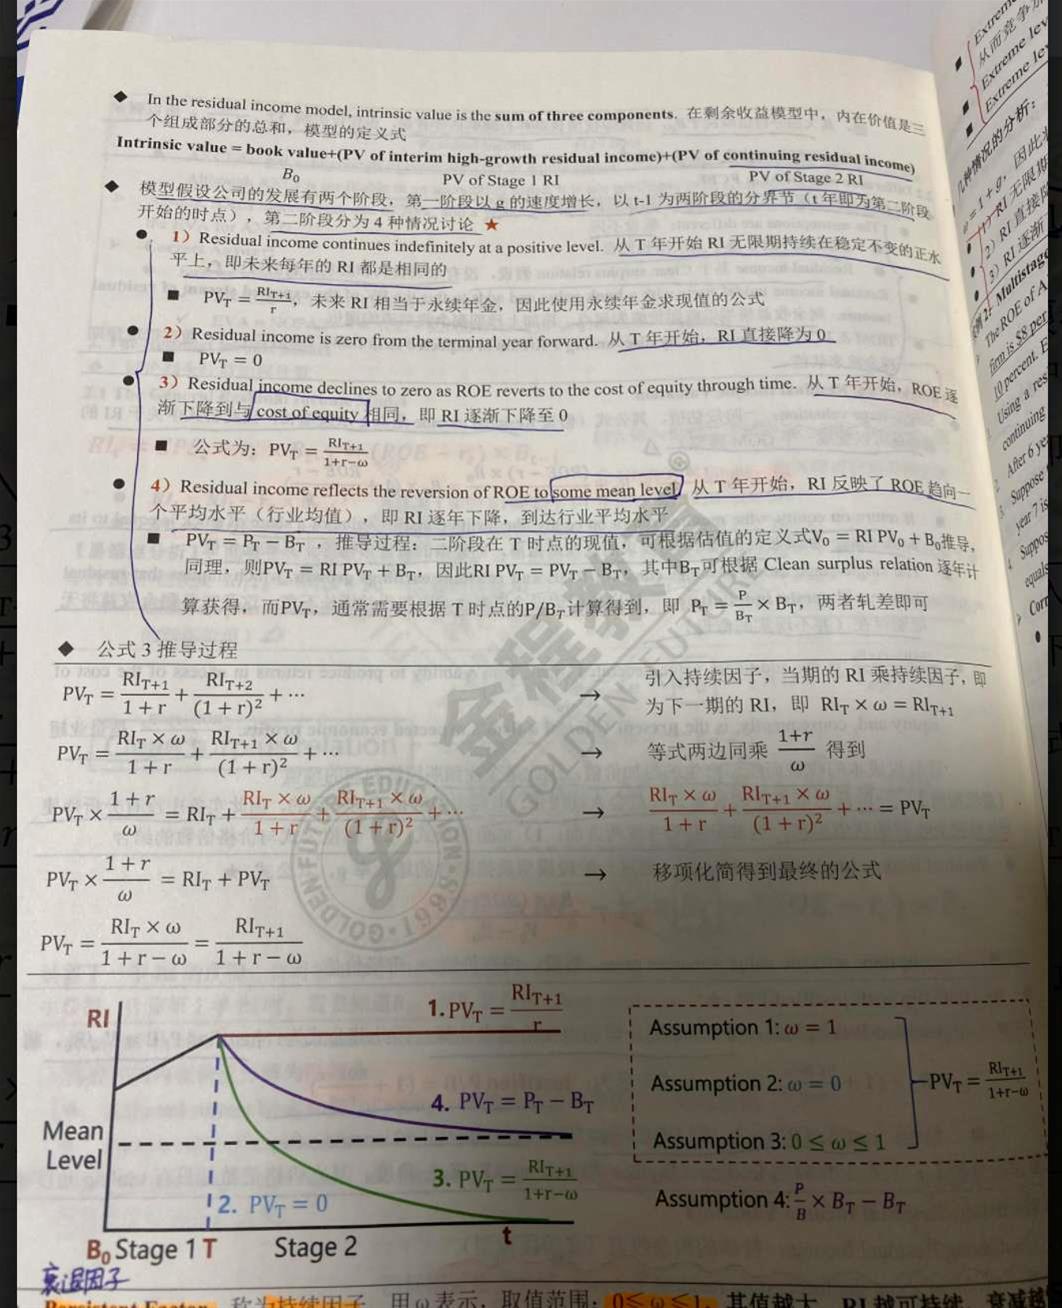 ◆ In the residual income model, intrinsic value is the sum of three components. 在剩余收益模型中，内在价值是三
个组成部分的总和，模型的定义式
Intrinsic value = book value+(PV of interim high-growth residual income)+(PV of continuing residual income)
B₀ PV of Stage 1 RI PV of Stage 2 RI
◆ 模型假设公司的发展有两个阶段，第一阶段以 g 的速度增长，以 t-1 为两阶段的分界节（t 年即为第二阶段
开始的时点），第二阶段分为 4 种情况讨论 ★
● 1）Residual income continues indefinitely at a positive level. 从 T 年开始 RI 无限期持续在稳定不变的正水
平上，即未来每年的 RI 都是相同的
■ PV_T = RI_{T+1}/r，未来 RI 相当于永续年金，因此使用永续年金求现值的公式
● 2）Residual income is zero from the terminal year forward. 从 T 年开始，RI 直接降为 0
■ PV_T = 0
● 3）Residual income declines to zero as ROE reverts to the cost of equity through time. 从 T 年开始，ROE 逐
渐下降到与 cost of equity 相同，即 RI 逐渐下降至 0
■ 公式为：PV_T = RI_{T+1}/(1+r−ω)
● 4）Residual income reflects the reversion of ROE to some mean level. 从 T 年开始，RI 反映了 ROE 趋向一
个平均水平（行业均值），即 RI 逐年下降，到达行业平均水平
■ PV_T = P_T − B_T ，推导过程：二阶段在 T 时点的现值，可根据估值的定义式V₀ = RI PV₀ + B₀推导，
同理，则PV_T = RI PV_T + B_T，因此RI PV_T = PV_T − B_T，其中B_T可根据 Clean surplus relation 逐年计
算获得，而PV_T，通常需要根据 T 时点的P/B_T计算得到，即 P_T = P/B_T × B_T，两者轧差即可
◆ 公式 3 推导过程
PV_T = RI_{T+1}/(1 + r) + RI_{T+2}/(1 + r)² + ⋯ → 引入持续因子，当期的 RI 乘持续因子，即
为下一期的 RI，即 RI_T × ω = RI_{T+1}
PV_T = (RI_T × ω)/(1 + r) + (RI_{T+1} × ω)/(1 + r)² + ⋯ → 等式两边同乘 (1+r)/ω 得到
PV_T × (1 + r)/ω = RI_T + (RI_T × ω)/(1 + r) + (RI_{T+1} × ω)/(1 + r)² + ⋯ → (RI_T × ω)/(1 + r) + (RI_{T+1} × ω)/(1 + r)² + ⋯ = PV_T
PV_T × (1 + r)/ω = RI_T + PV_T → 移项化简得到最终的公式
PV_T = (RI_T × ω)/(1 + r − ω) = RI_{T+1}/(1 + r − ω)
金程教育®
GOLDEN FUTURE
RI
1. PV_T = RI_{T+1}/r
4. PV_T = P_T − B_T
Mean
Level
3. PV_T = RI_{T+1}/(1+r−ω)
2. PV_T = 0
t
B₀ Stage 1 T Stage 2
Assumption 1: ω = 1
Assumption 2: ω = 0
PV_T = RI_{T+1}/(1+r−ω)
Assumption 3: 0 ≤ ω ≤ 1
Assumption 4: P/B × B_T − B_T
衰退因子
称为持续因子，用 ω 表示，取值范围：0≤ω≤1，其值越大，RI 越可持续，衰减越
Extreme lev
Extreme le
种情况的分析：
ω = 1 + g，因此
Multistage
The ROE of A
firm is $8 per
10 percent.
Using a res
continuing
After 6 ye
Suppose
year 7 is
Suppos
equals